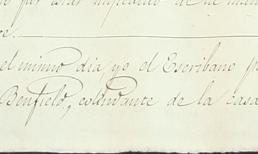 por estar
el mismo dia, yo el Escribano
Benfield, colindante de la casa